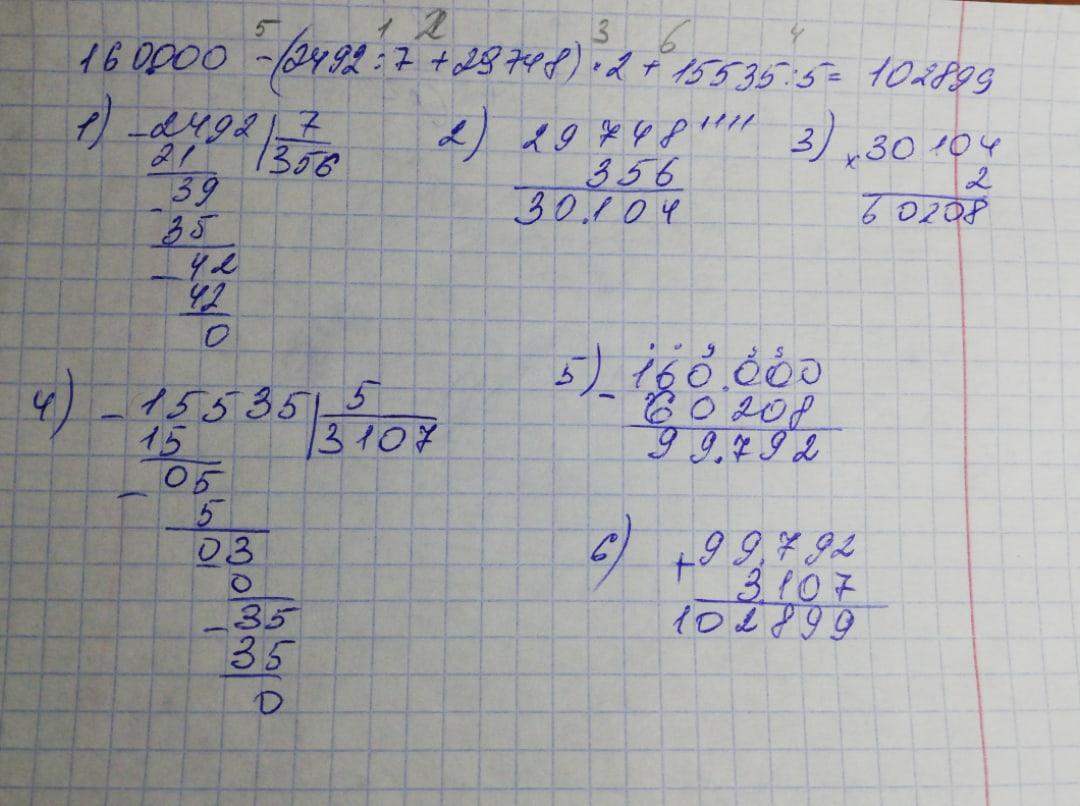 5 1 2 3 6 4
160000 - (2492 : 7 + 29748) · 2 + 15535 : 5 = 102899
1) - 2492 | 7
21 356
- 39
35
- 42
42
0
2) 29 748
356
30.104
3) × 30 104
2
60208
4) - 15535 | 5
15 3107
- 05
5
03
0
- 35
35
0
5) - 160.000
60 208
99.792
6) + 99.792
3.107
102899